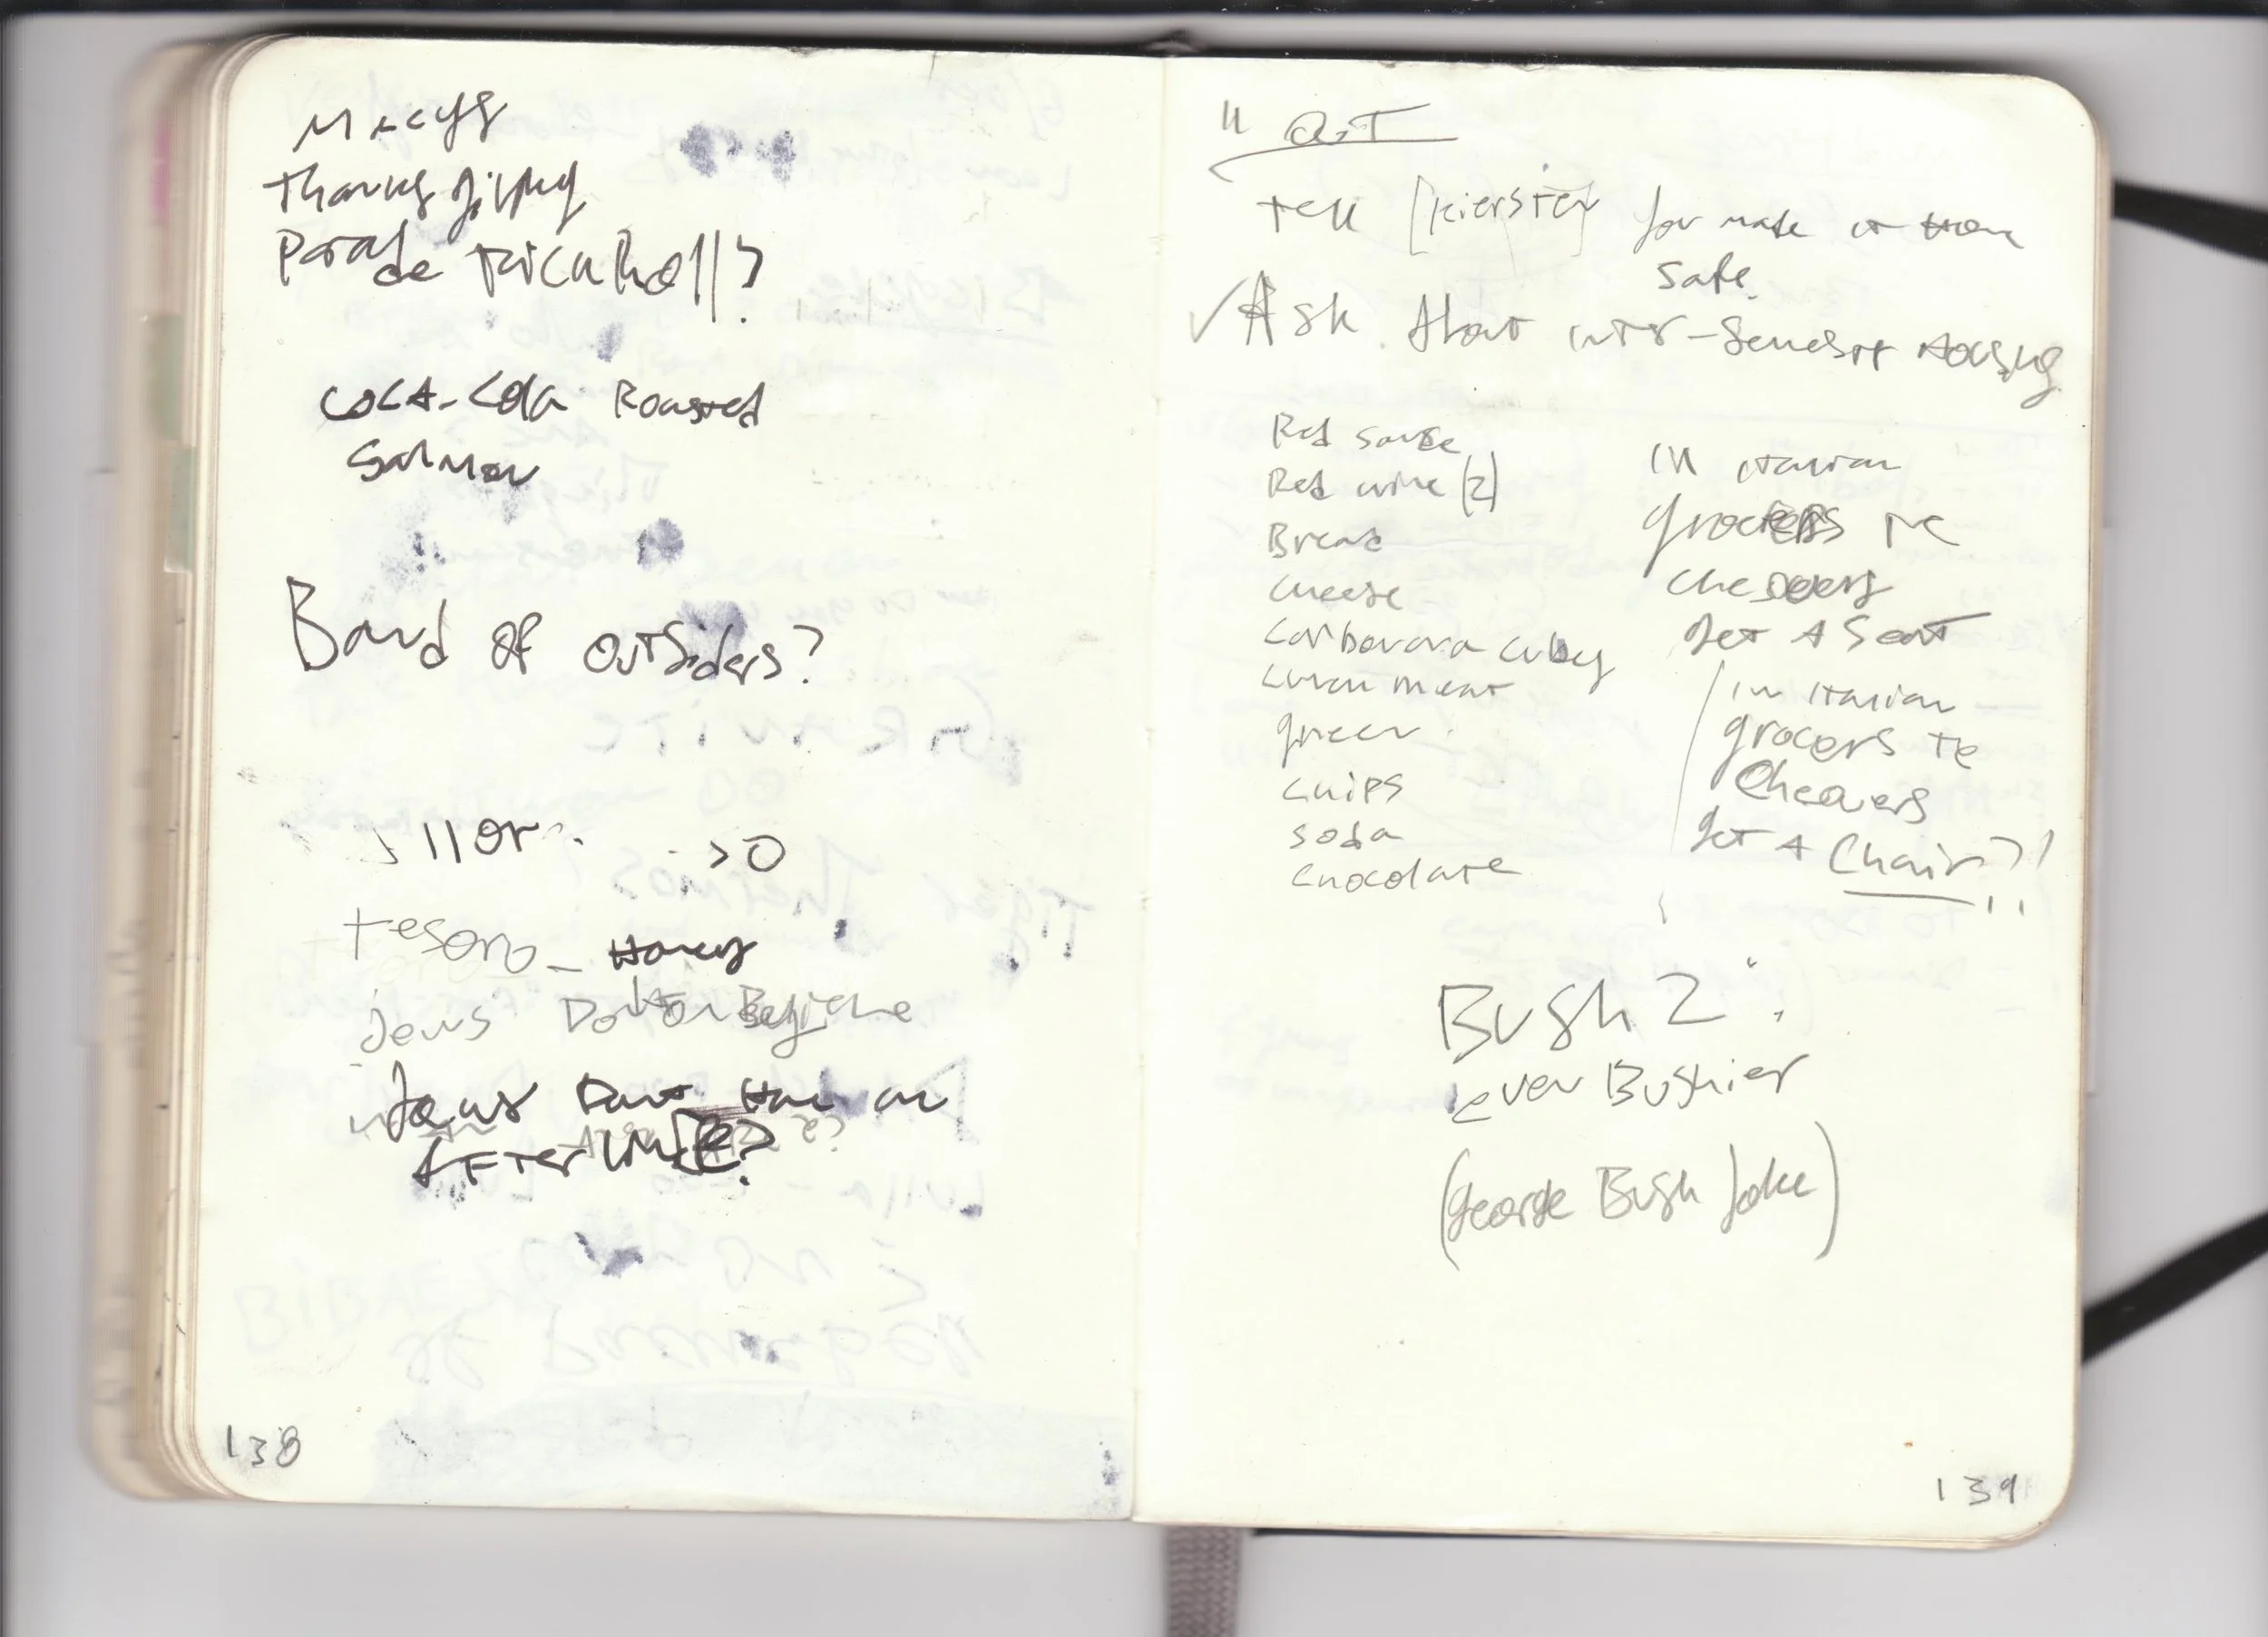 Macys
Thanksgiving
Parade RickRoll?
Coca-Cola Roasted
Salmon
Band of outsiders?
Tesoro - Honey
Jews Don't Believe
Jews Don't Have an
AFTER Life?
138
" QT
Tell [Kiersten] you made it home
safe.
✓ Ask About inter-semester Housing
Red sauce
Red wine (2)
Bread
cheese
Carbonara cubes
Lunch meat
green
chips
soda
chocolate
In Italian
grocers te
cheavers
get A Seat
In Italian
grocers te
Cheavers
get A Chair?!
Bush 2:
Even Bushier
(George Bush Joke)
139